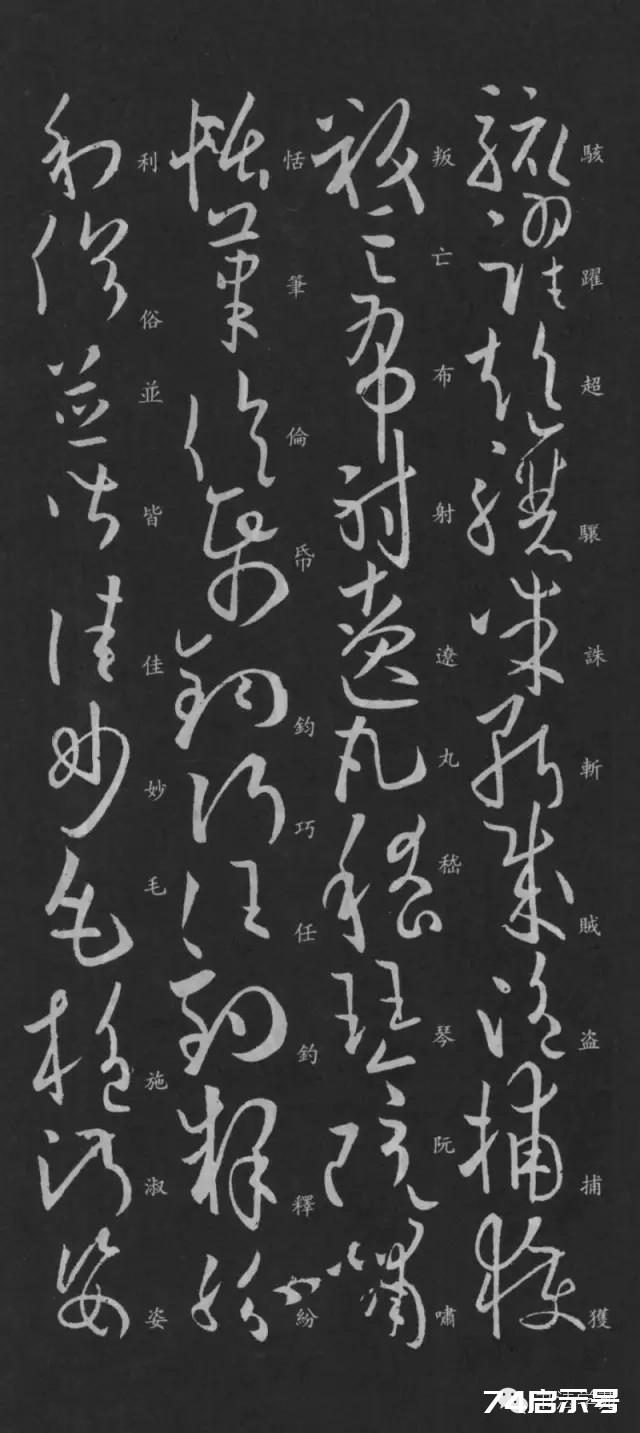 駭躍超驤誅斬賊盗捕獲
叛亡布射遼丸嵇琴阮嘯
恬筆倫帋鈞巧任釣釋紛
利俗並皆佳妙毛施淑姿
74启示号